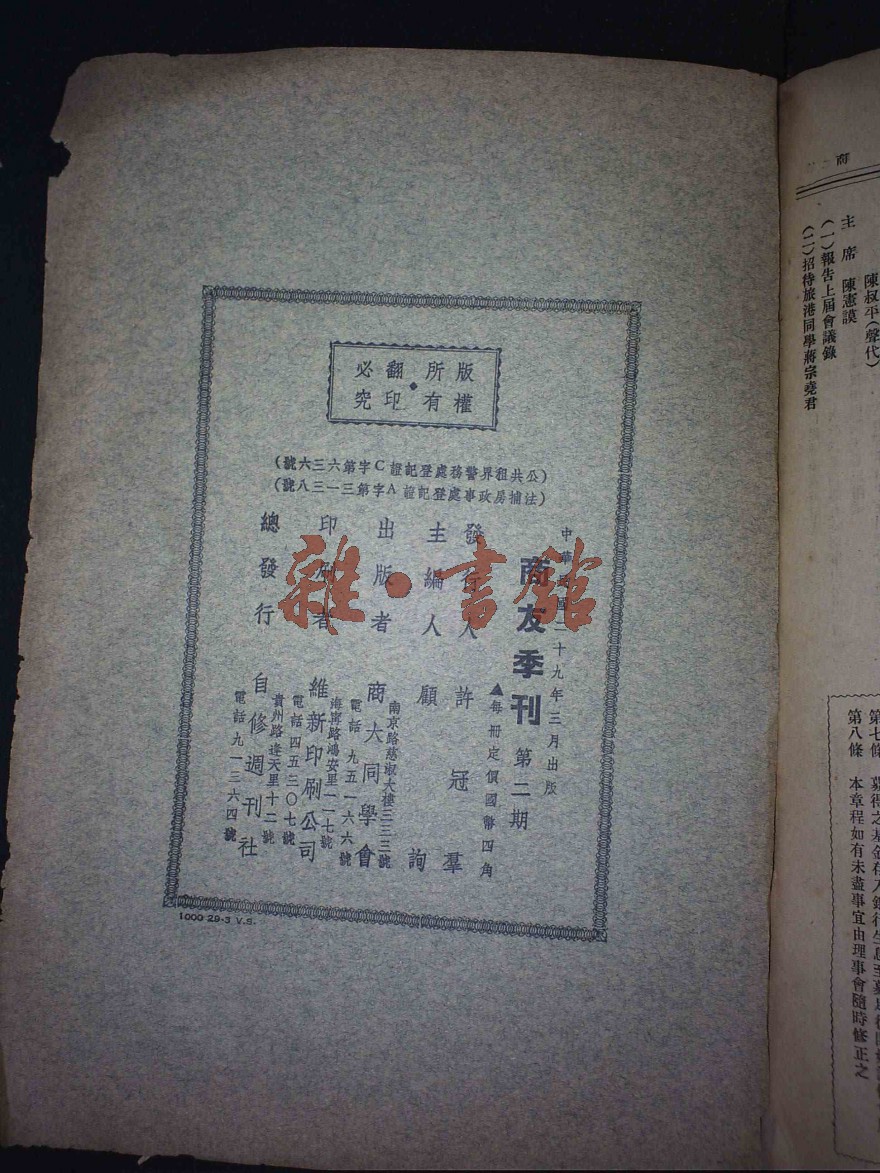 版權所有
翻印必究
（公共租界警務處登記證C字第六三六號）
（法捕房政事處登記證A字第三一三八號）
中華民國二十九年三月出版
商友季刊 第二期
▲每冊定價國幣四角
發行人 許冠羣
主編人 顧詢
出版者 商大同學會
南京路慈淑大樓三三三號
電話 九五一六六號
印刷者 維新印刷公司
海寧路鴻安里一一七號
電話四五二〇七號
總發行 自修週刊社
貴州路逢天里十二號
電話九一三六四號
1000 29-3 V.S.
雜·書館
商
陳叔平（聲代）
主席 陳憲謨
（一）報告上屆會議錄
（二）招待旅港同學蔣宗堯君
第七條
第八條 本章程如有未盡事宜由理事會隨時修正之